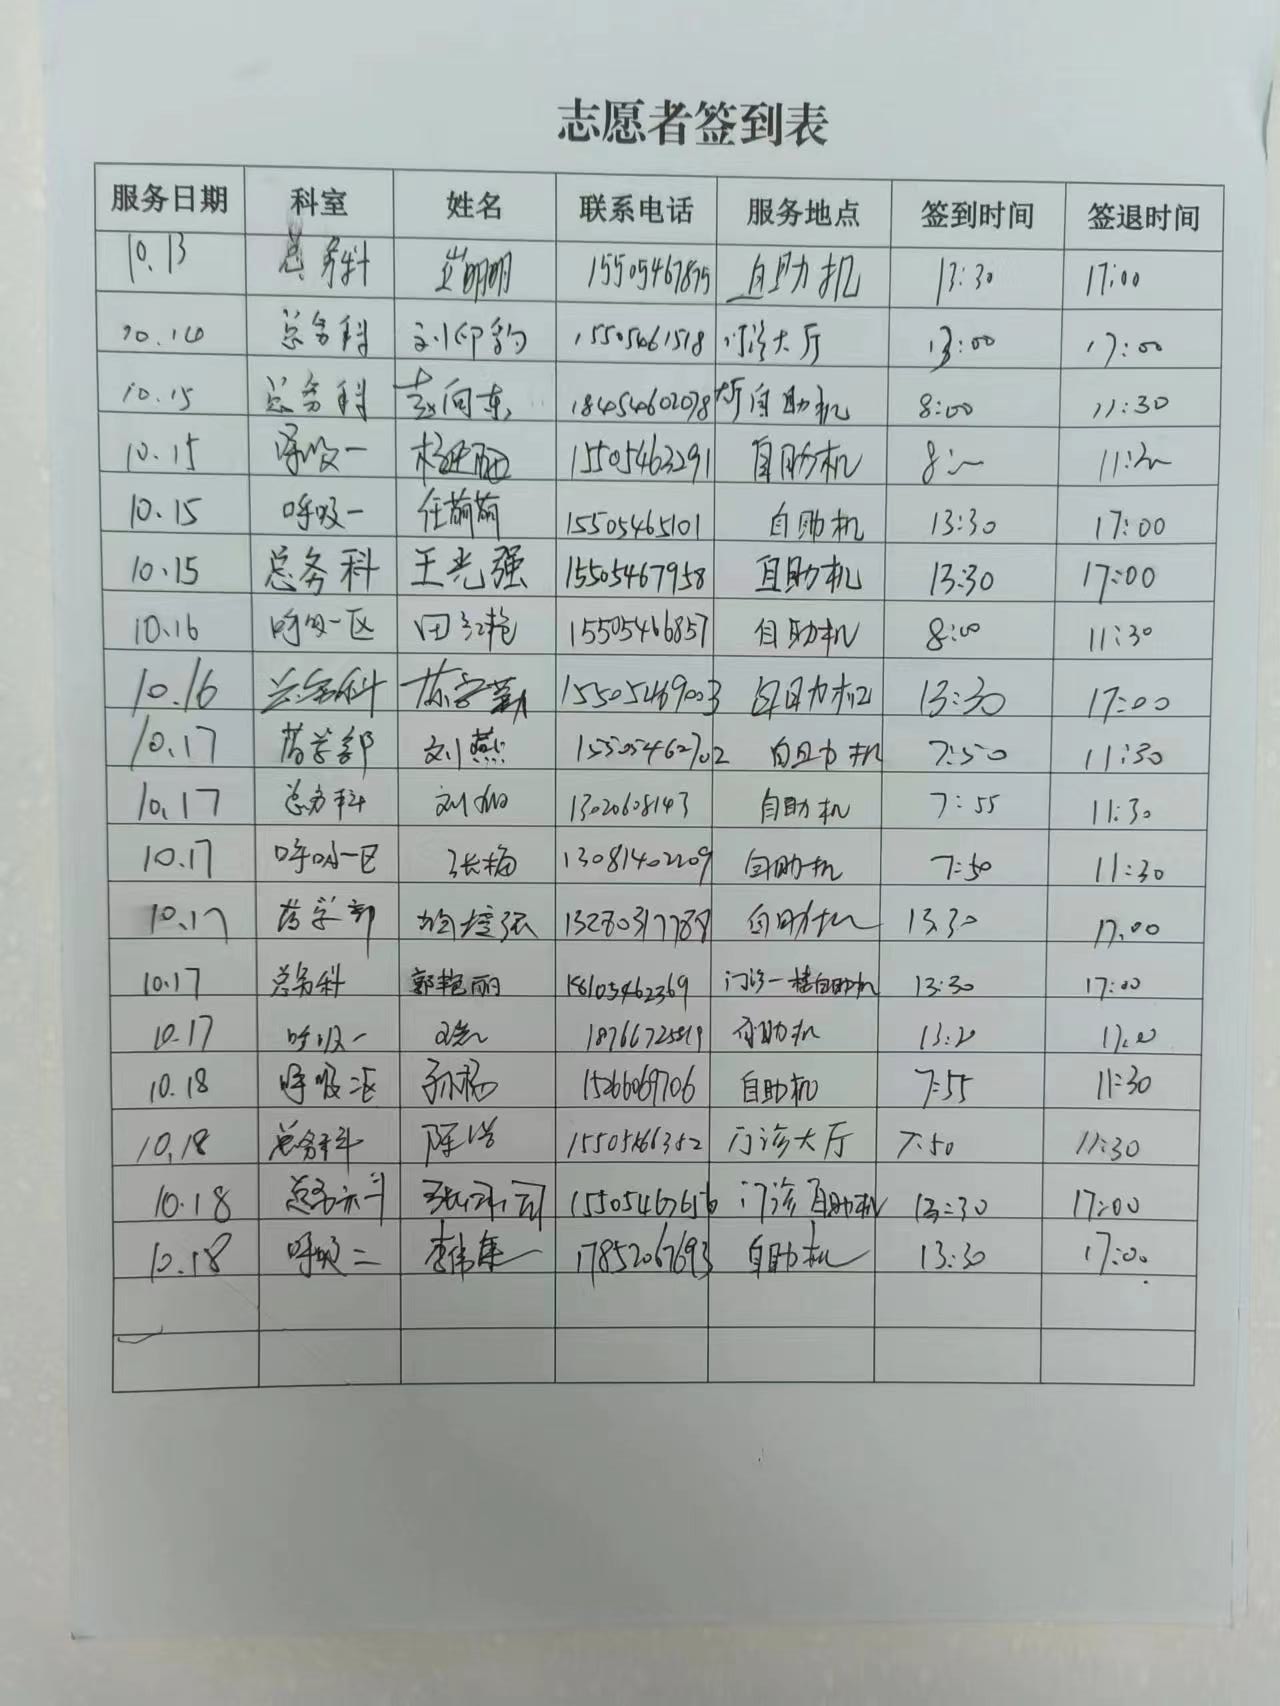 志愿者签到表
服务日期 科室 姓名 联系电话 服务地点 签到时间 签退时间
10.13 总务科 崔明明 15505467875 自助机 13:30 17:00
10.14 总务科 刘印豹 15505461518 门诊大厅 13:00 17:00
10.15 总务科 赵向东 18454602078 大厅自助机 8:00 11:30
10.15 呼吸一 15505463291 自助机 8:00 11:30
10.15 呼吸一 任萌萌 15505465101 自助机 13:30 17:00
10.15 总务科 王光强 15505467958 自助机 13:30 17:00
10.16 呼吸一区 田红艳 15505466857 自助机 8:00 11:30
10.16 总务科 15505469003 自助机 13:30 17:00
10.17 药学部 刘燕 15505462702 自助机 7:50 11:30
10.17 总务科 1302608143 自助机 7:55 11:30
10.17 呼吸一区 张梅 13081402209 自助机 7:50 11:30
10.17 药学部 自助机 13:30 17:00
10.17 总务科 郭艳丽 18105462369 门诊一楼自助机 13:30 17:00
10.17 呼吸一 自助机 17:00
10.18 呼吸二区 孙杨 15266069706 自助机 7:55 11:30
10.18 总务科 门诊大厅 7:50 11:30
10.18 总务科 15505467656 门诊自助机 13:30 17:00
10.18 呼吸二 17852067693 自助机 13:30 17:00